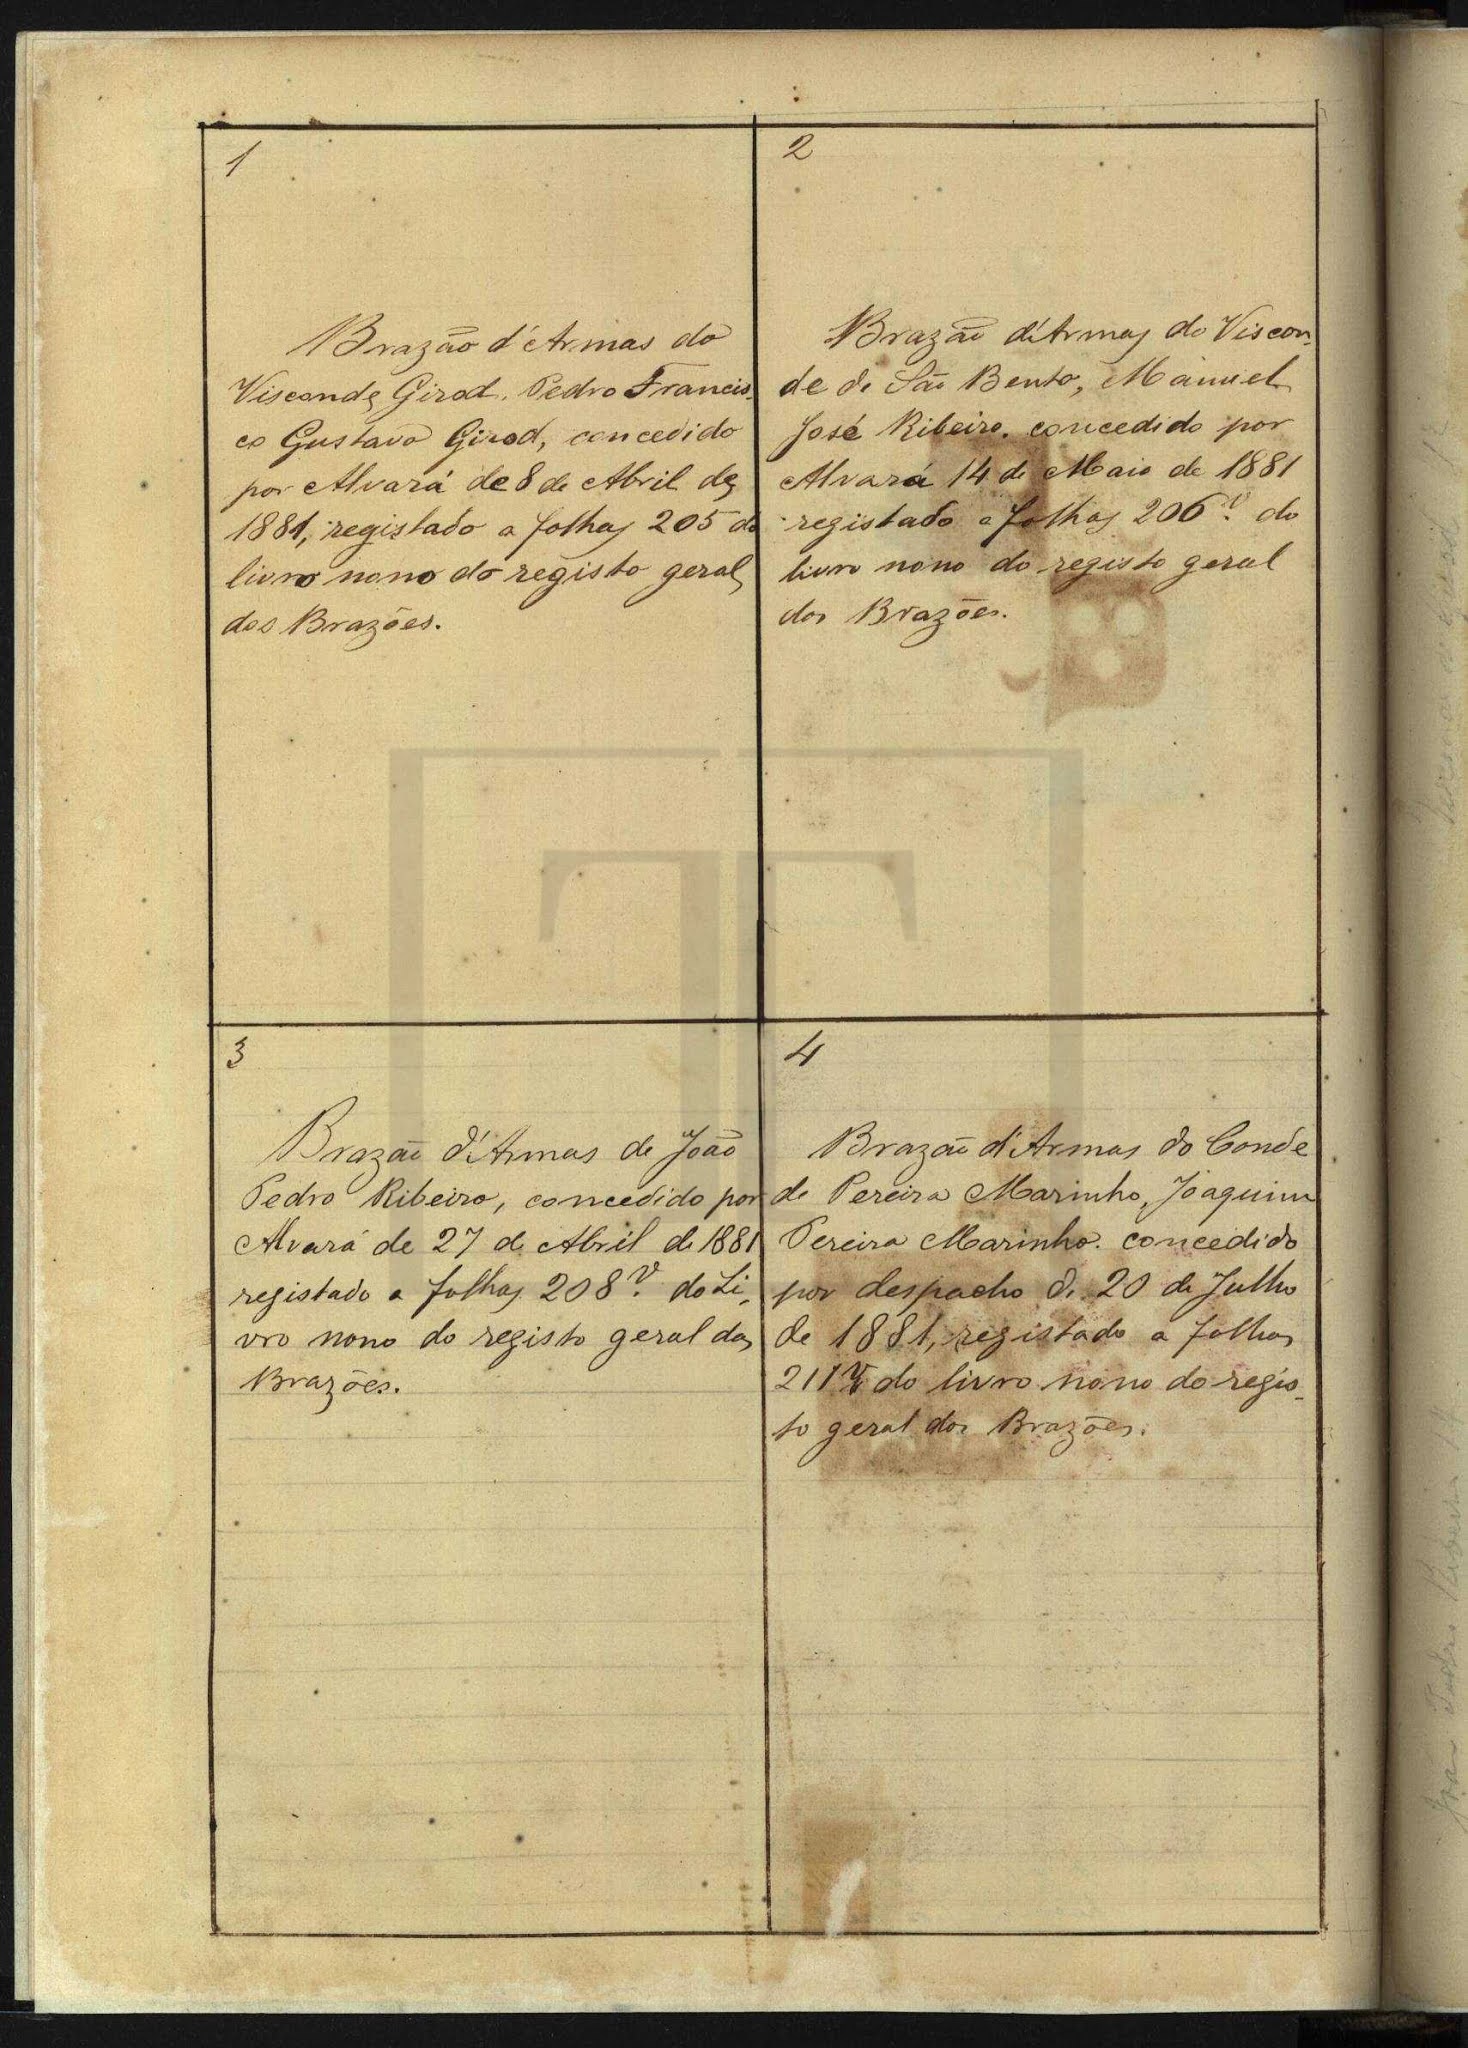 1
Brazão d'Armas do
Visconde Girod, Pedro Francis-
co Gustavo Girod, concedido
por Alvará de 8 de Abril de
1881, registado a folhas 205 do
livro nono do registo geral
dos Brazões.
2
Brazão d'Armas do Viscon-
de de São Bento, Manuel
José Ribeiro, concedido por
Alvará 14 de Maio de 1881
registado a folhas 206 v. do
livro nono do registo geral
dos Brazões.
3
Brazão d'Armas de João
Pedro Ribeiro, concedido por
Alvará de 27 de Abril de 1881
registado a folhas 208 v. do Li-
vro nono do registo geral dos
Brazões.
4
Brazão d'Armas do Conde
de Pereira Marinho, Joaquim
Pereira Marinho. concedido
por despacho de 20 de Julho
de 1881, registado a folhas
211 v. do livro nono do regis-
to geral dos Brazões.